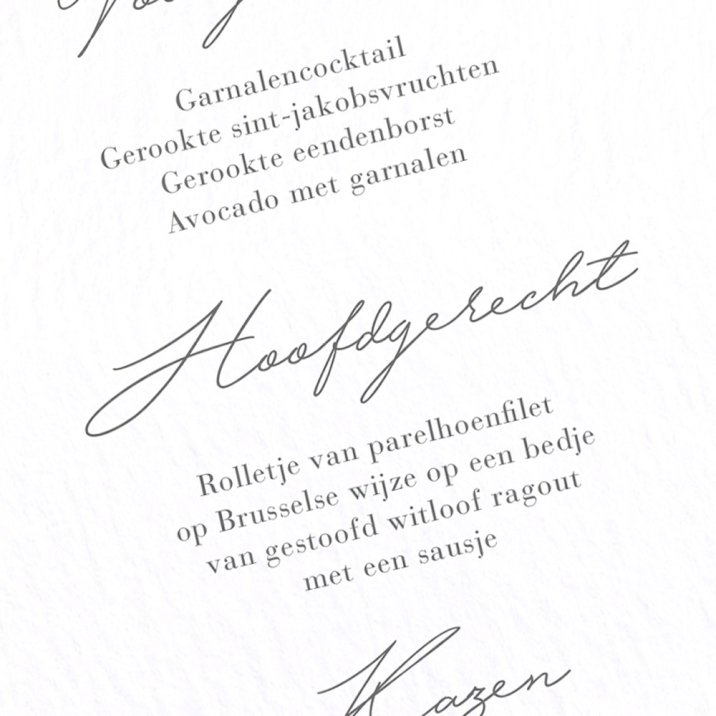 Garnalencocktail
Gerookte sint-jakobsvruchten
Gerookte eendenborst
Avocado met garnalen
Hoofdgerecht
Rolletje van parelhoenfilet
op Brusselse wijze op een bedje
van gestoofd witloof ragout
met een sausje
Kazen